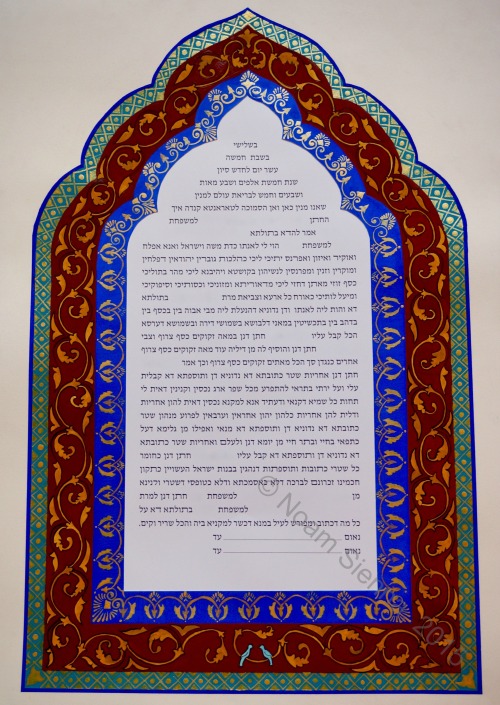 בשלישי
בשבת חמשה
עשר יום לחדש סיון
שנת חמשת אלפים ושבע מאות
ושבעים וחמש לבריאת עולם למנין
שאנו מנין כאן ואן הסמוכה לטאראנטא קנדה איך
החתן למשפחת
אמר להדא בתולתא
למשפחת הוי לי לאנתו כדת משה וישראל ואנא אפלח
ואוקיר ואיזון ואפרנס יתיכי ליכי כהלכות גוברין יהודאין דפלחין
ומוקרין וזנין ומפרנסין לנשיהון בקושטא ויהיבנא ליכי מהר בתוליכי
כסף זוזי מאתן דחזי ליכי מדאורייתא ומזוניכי וכסותיכי וסיפוקיכי
ומיעל לותיכי כאורח כל ארעא וצביאת מרת בתולתא
דא והות ליה לאנתו ודן נדוניא דהנעלת ליה מבי אבוה בין בכסף בין
בדהב בין בתכשיטין במאני דלבושא בשמושי דירה ובשמושא דערסא
הכל קבל עליו חתן דנן במאה זקוקים כסף צרוף וצבי
חתן דנן והוסיף לה מן דיליה עוד מאה זקוקים כסף צרוף
אחרים כנגדן סך הכל מאתים זקוקים כסף צרוף וכך אמר
חתן דנן אחריות שטר כתובתא דא נדוניא דן ותוספתא דא קבלית
עלי ועל ירתי בתראי להתפרע מכל שפר ארג נכסין וקנינין דאית לי
תחות כל שמיא דקנאי ודעתיד אנא למקנא נכסין דאית להון אחריות
ודלית להון אחריות כלהון יהון אחראין וערבאין לפרוע מנהון שטר
כתובתא דא נדוניא דן ותוספתא דא מנאי ואפילו מן גלימא דעל
כתפאי בחיי ובתר חיי מן יומא דנן ולעלם ואחריות שטר כתובתא
דא נדוניא דן ותוספתא דא קבל עליו חתן דנן כחומר
כל שטרי כתובות ותוספתות דנהגין בבנות ישראל העשויין כתקון
חכמינו זכרונם לברכה דלא כאסמכתא ודלא כטופסי דשטרי וקנינא
מן למשפחת חתן דנן למרת
למשפחת בתולתא דא על
כל מה דכתוב ומפורש לעיל במנא דכשר למקניא ביה והכל שריר וקים.
נאום עד
נאום עד
© Noam Sienna 2015